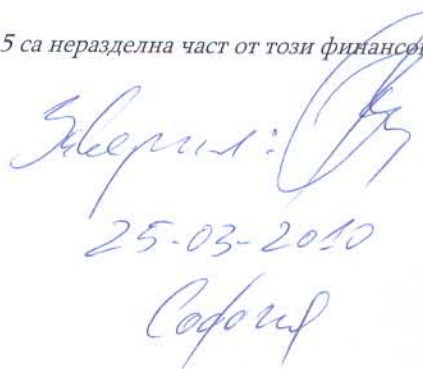 5 са неразделна част от този финансов
Заверил:
25-03-2010
София